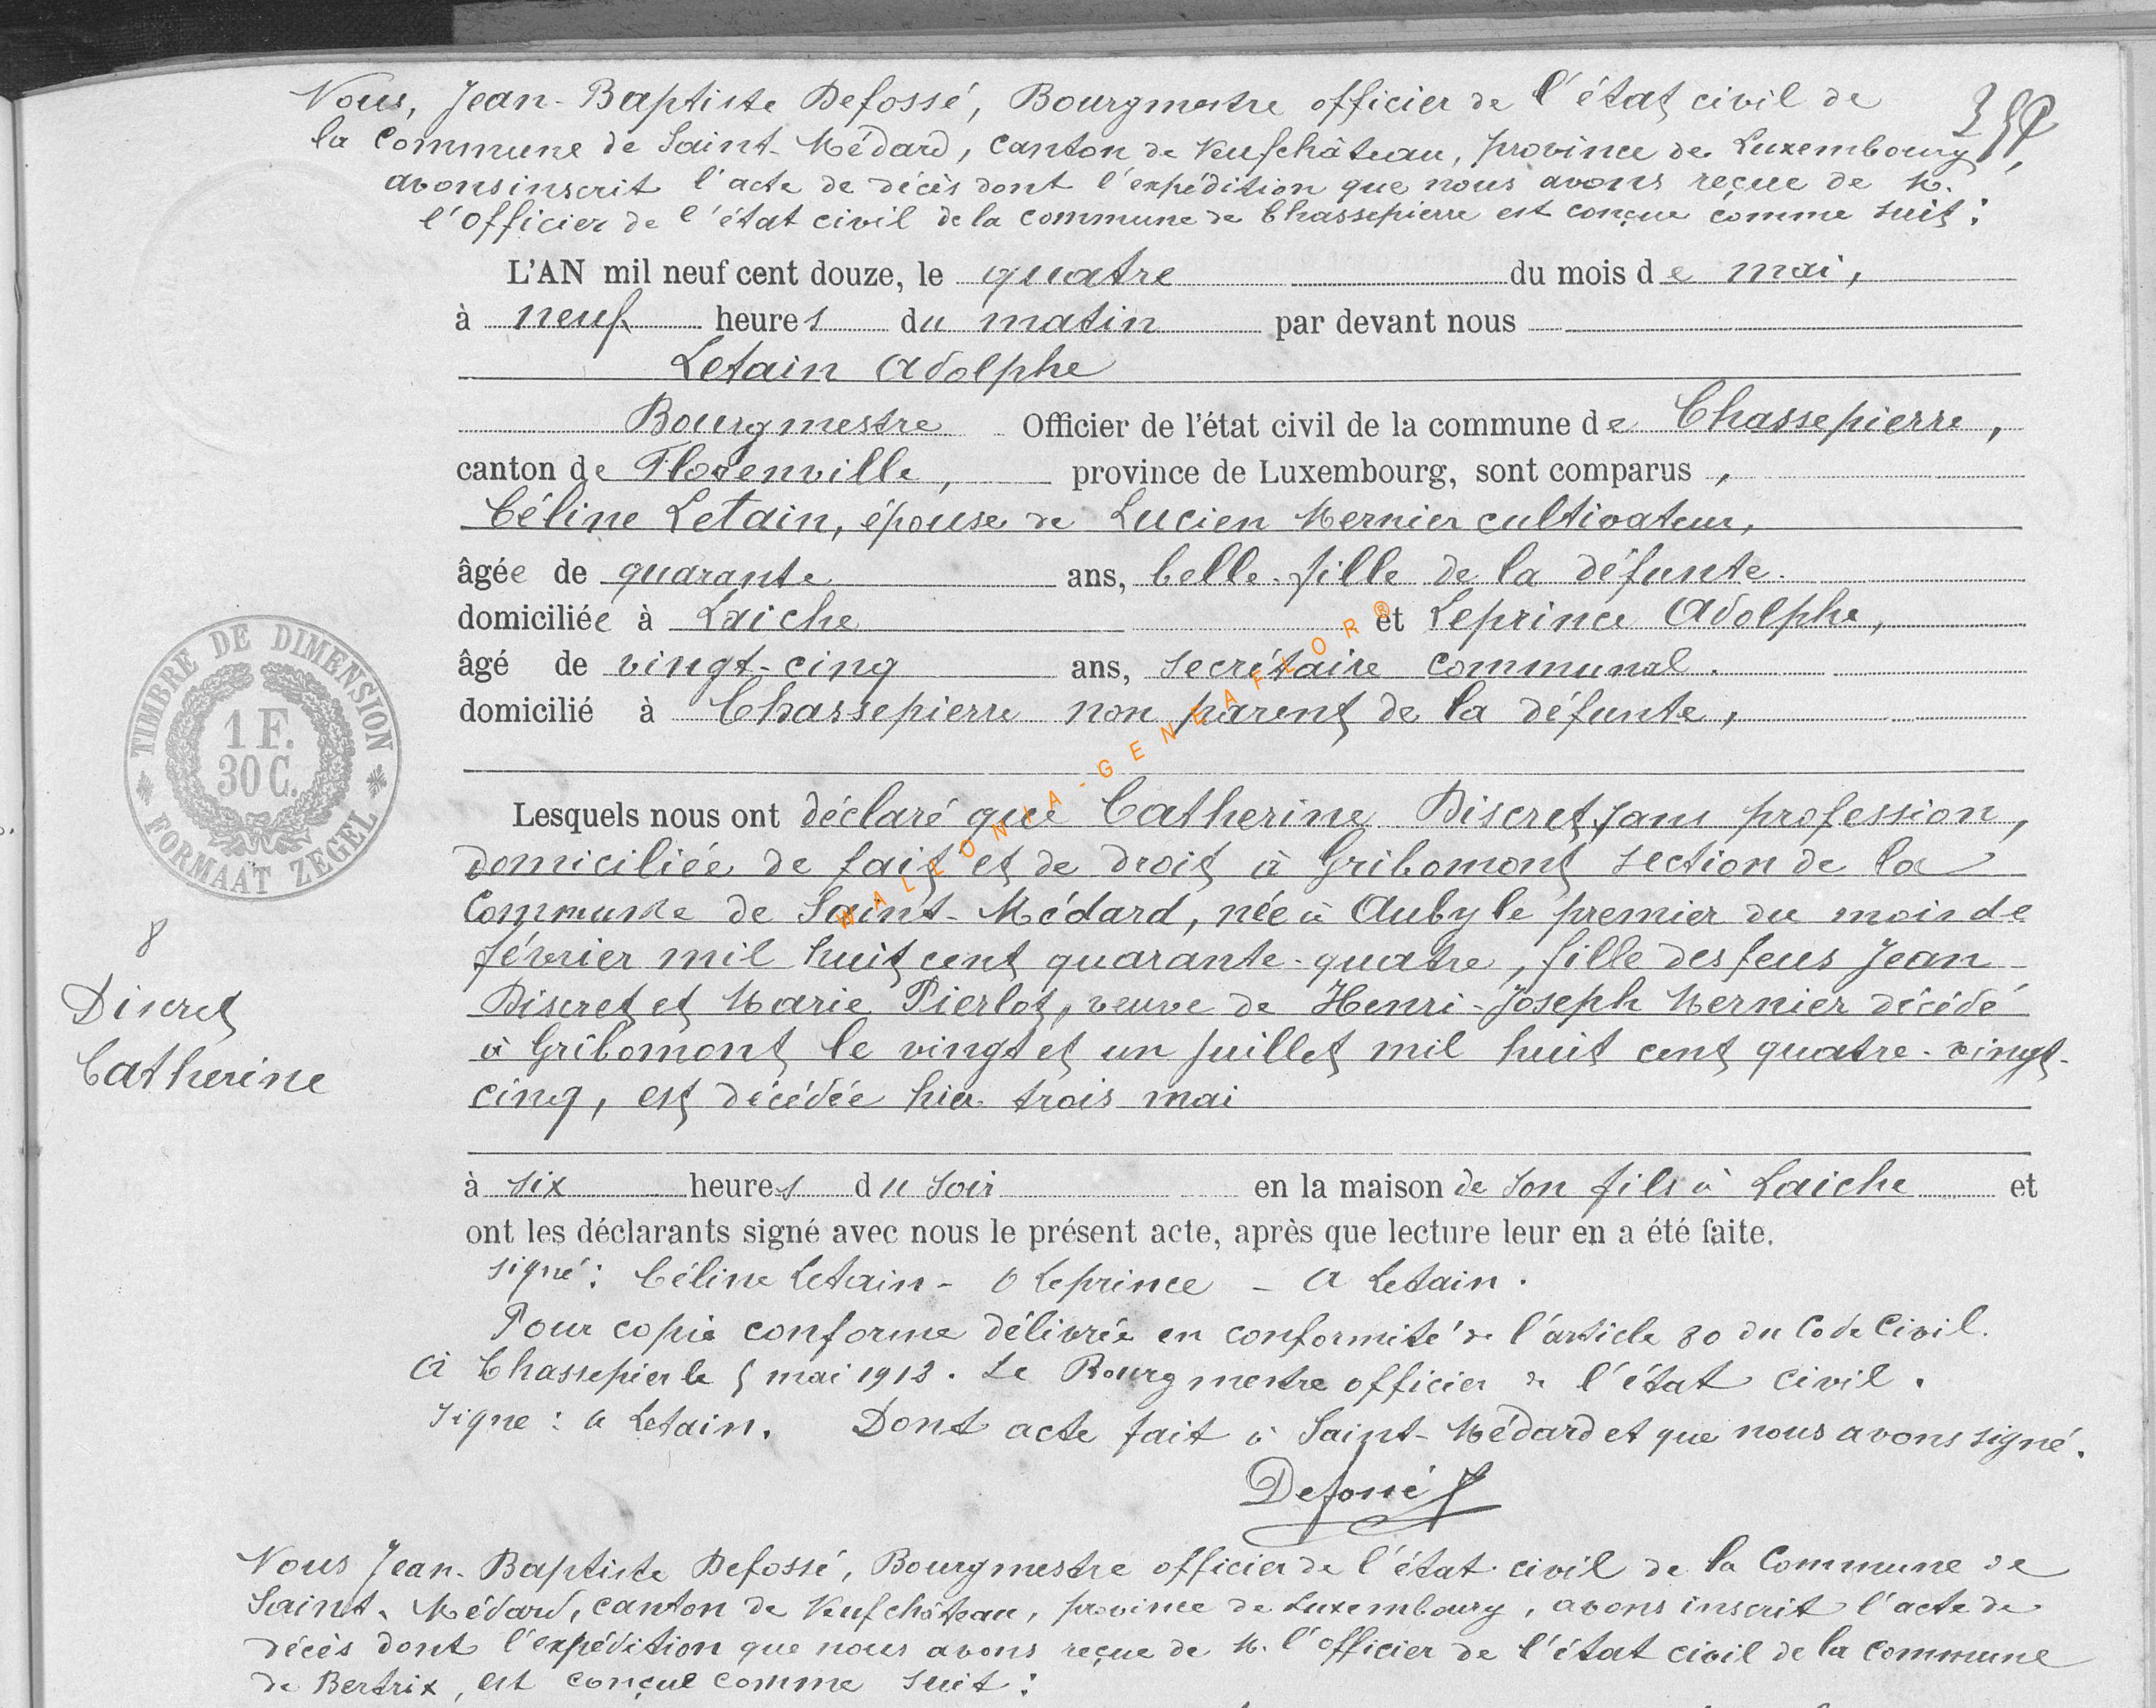 Nous, Jean-Baptiste Defossé, Bourgmestre officier de l'état civil de
la Commune de Saint-Médard, canton de Neufchâteau, province de Luxembourg,
avons inscrit l'acte de décès dont l'expédition que nous avons reçue de M.
l'Officier de l'état civil de la commune de Chassepierre est conçue comme suit :
L'AN mil neuf cent douze, le quatre du mois de mai,
à neuf heures du matin par devant nous
Letain Adolphe
Bourgmestre Officier de l'état civil de la commune de Chassepierre,
canton de Florenville, province de Luxembourg, sont comparus,
Céline Letain, épouse de Lucien Mernier cultivateur,
âgée de quarante ans, belle-fille de la défunte.
domiciliée à Laiche et Leprince Adolphe,
âgé de vingt-cinq ans, secrétaire communal.
domicilié à Chassepierre non parent de la défunte,
Lesquels nous ont déclaré que Catherine Discret, sans profession,
domiciliée de fait et de droit à Gribomont section de la
Commune de Saint-Médard, née à Auby le premier du mois de
février mil huit cent quarante-quatre, fille des feus Jean
Discret et Marie Pierlot, veuve de Henri-Joseph Mernier décédé
à Gribomont le vingt et un juillet mil huit cent quatre-vingt-
cinq, est décédée hier trois mai
à six heures du soir en la maison de son fils à Laiche et
ont les déclarants signé avec nous le présent acte, après que lecture leur en a été faite.
signé : Céline Letain - A Leprince - A Letain.
Pour copie conforme délivrée en conformité de l'article 80 du Code Civil.
A Chassepier le 5 mai 1912. Le Bourgmestre officier de l'état civil.
signe : A Letain. Dont acte fait à Saint-Médard et que nous avons signé.
Defossé
Nous Jean-Baptiste Defossé, Bourgmestre officier de l'état civil de la Commune de
Saint-Médard, canton de Neufchâteau, province de Luxembourg, avons inscrit l'acte de
décès dont l'expédition que nous avons reçue de M. l'officier de l'état civil de la commune
de Bertrix, est conçue comme suit :
TIMBRE DE DIMENSION
1 F.
30 C.
FORMAAT ZEGEL
8
Discret
Catherine
WALLONIA-GENEAFLOR®